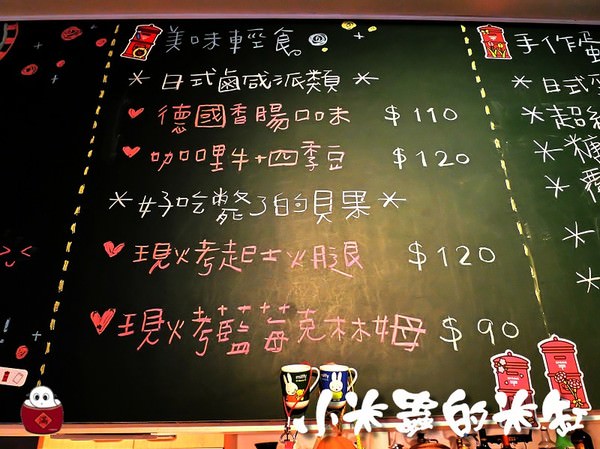 美味輕食
＊日式鹹派類＊
♥德國香腸口味 $110
♥咖哩牛+四季豆 $120
＊好吃斃了的貝果＊
♥現烤起士火腿 $120
♥現烤藍莓克林姆 $90
手作蛋
＊日式
＊超
＊糖
＊
＊
＊
小米蟲的米缸